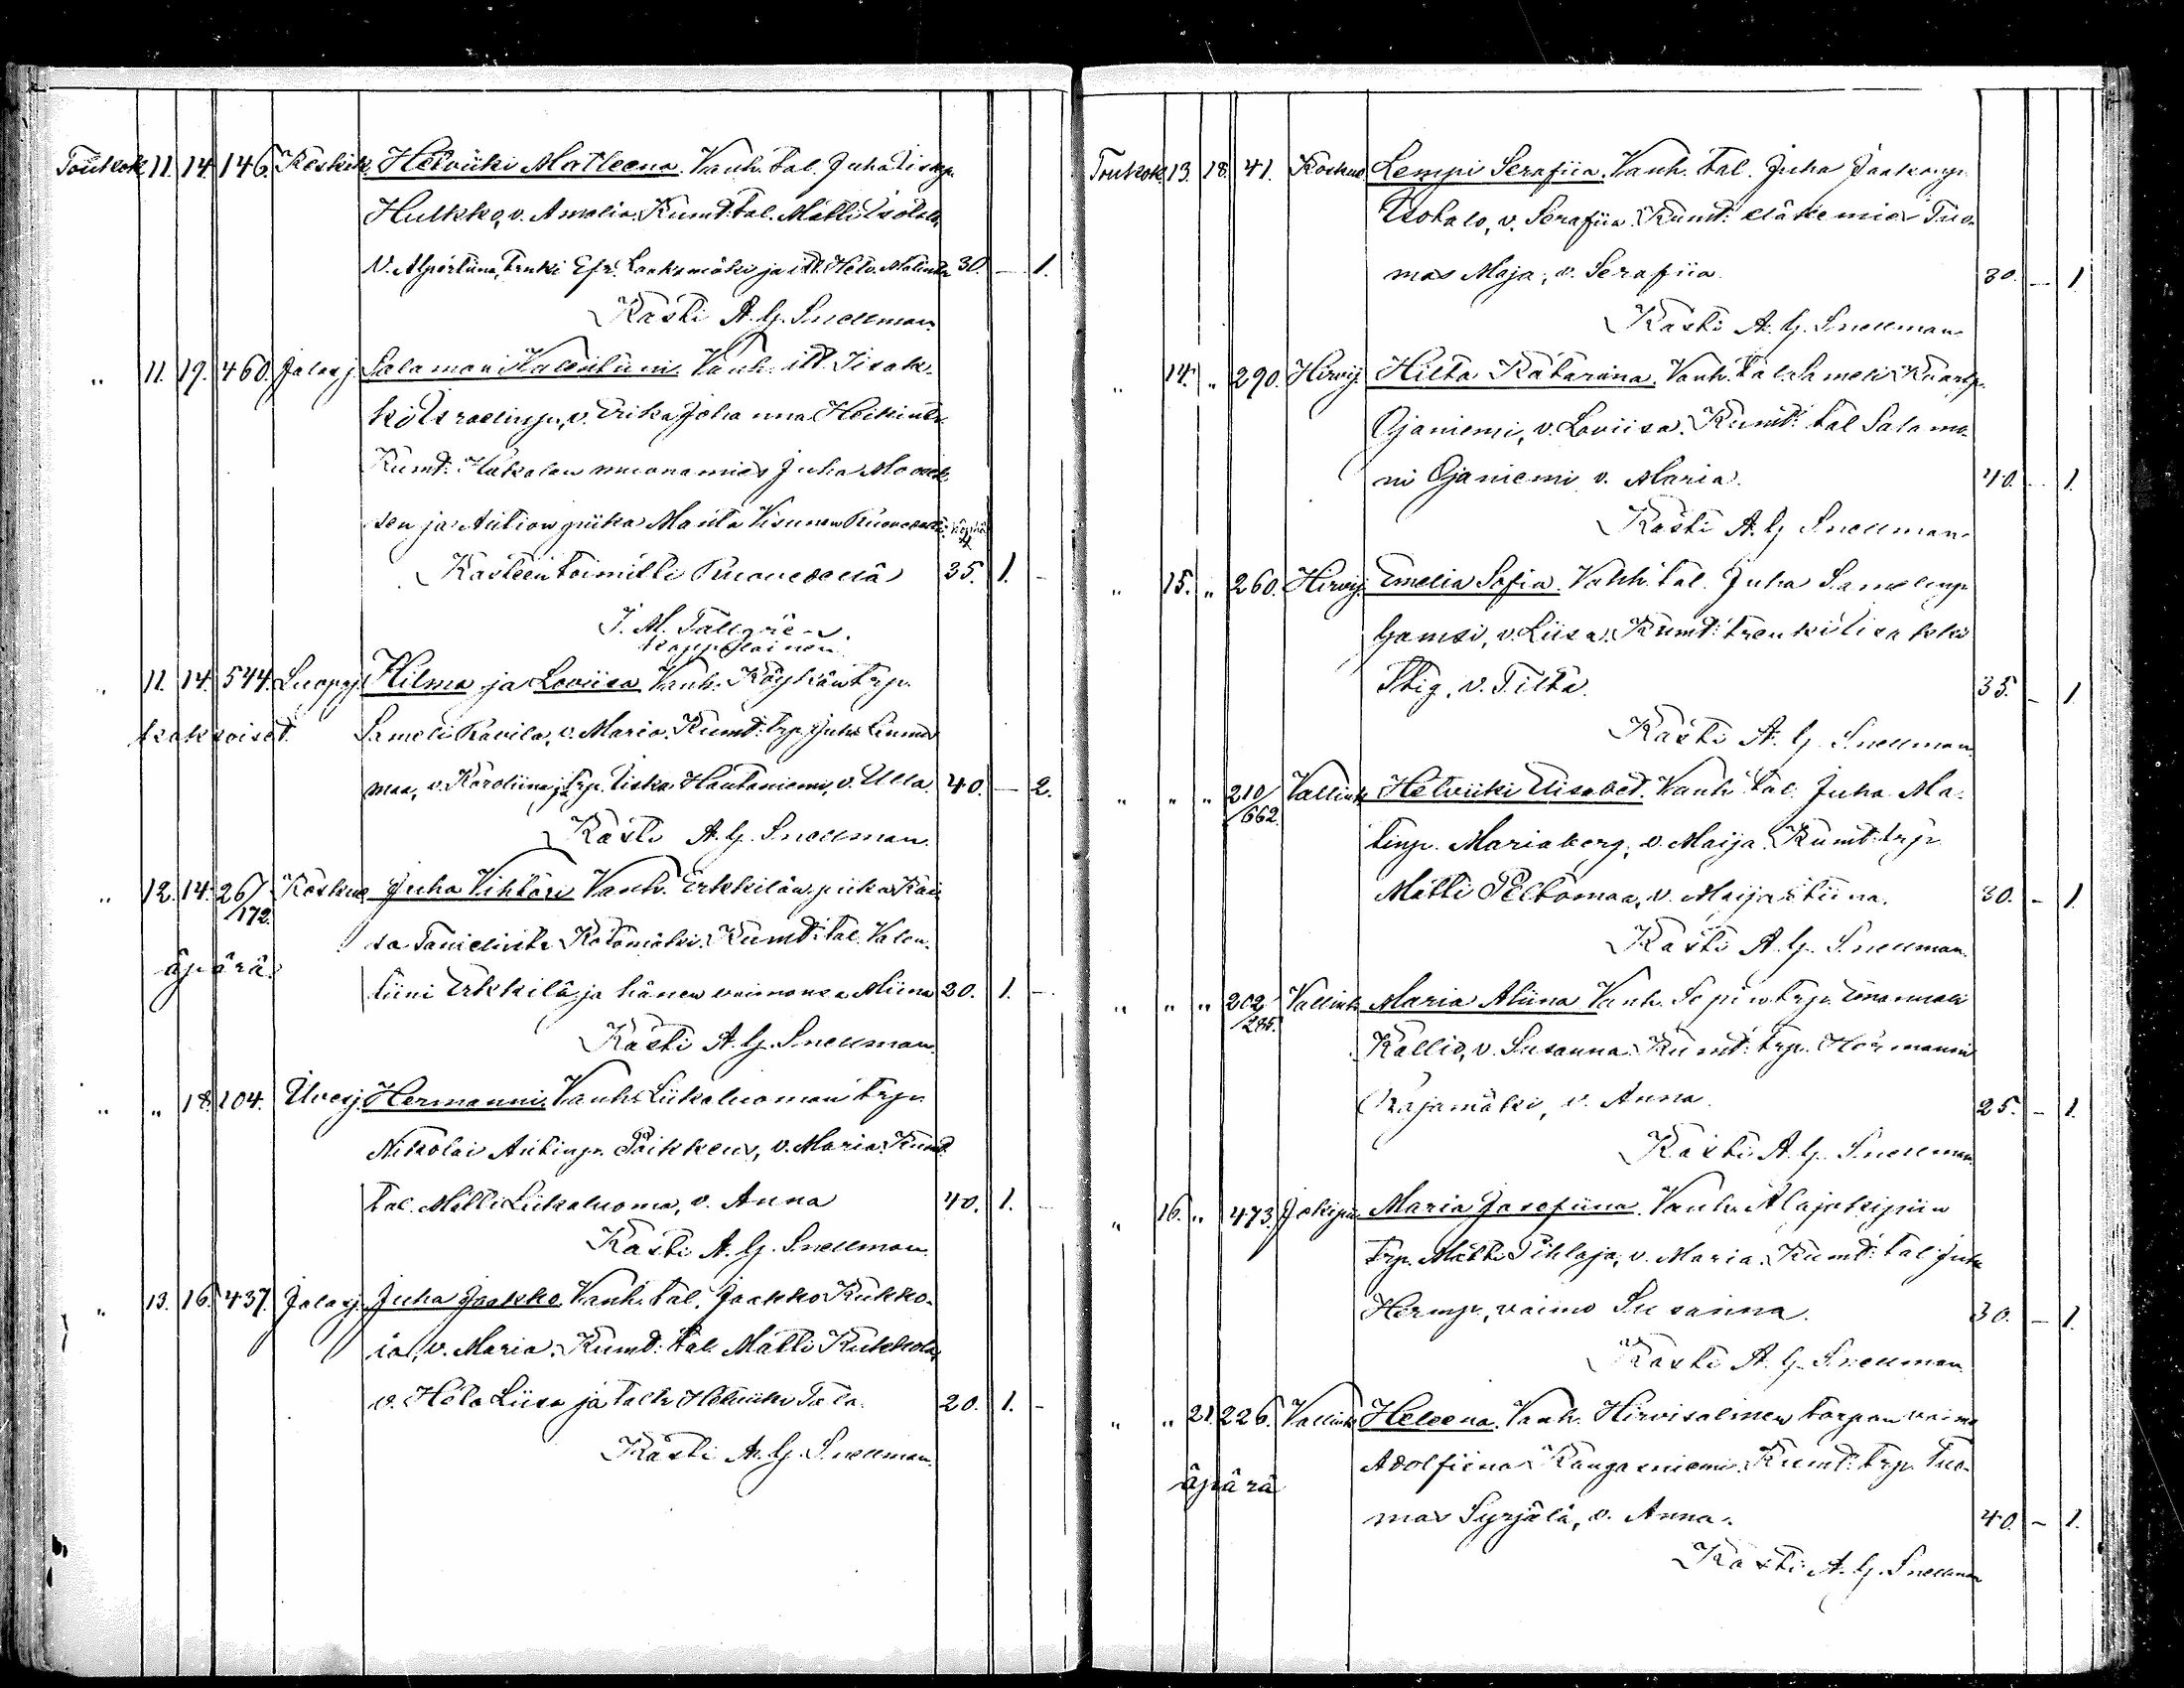 Toukok. 11. 14. 146. Keskik. Helviiki Matleena. Vanh. tal. Juha Iiskp.
Hulkko, v. Amalia. Kumd: tal. Matti Isotalo,
v. Alpertiina, trenki Efr. Laaksmäki ja itt. Helv. Malinda 30. — 1.
Kasti A. G. Snellman.
„ 11. 19. 460. Jalasj. Salamon Valentiini. Vanh. itt. Iisak-
ki Israelinp., v. Erika Johanna Heikint.
Kumd: Hakolan muonamies Juha
sen ja Aution piika Maria
Kasteen toimitti 35. 1. —
J. M. Tallgrén.
kappalainen
„ 11. 14. 544. Luopaj. Hilma ja Loviisa. Vanh. Köykän trp.
kaksoiset. Sameli Ravila, v. Maria. Kumd: trp. Juha
maa, v. Karoliina, ja trp. Iiska Hautaniemi, v. Ulla. 40. — 2.
Kasti A. G. Snellman.
„ 12. 14. 26/172. Koskue Juha Vihtori. Vanh. Erkkilän piika Kai-
sa Tanielint. Kotamäki. Kumd: tal. Valen-
äpärä.
tiini Erkkilä ja hänen vaimonsa Miina 20. 1. —
Kasti A. G. Snellman.
„ „ 18. 104. Ilvesj. Hermanni. Vanh. Liikaluoman trp.
Nikolai Antinp. Paikkens, v. Maria. Kumd.
tal. Matti Liikaluoma, v. Anna 40. 1. —
Kasti A. G. Snellman.
„ 13. 16. 437. Jalasj. Juha Jaakko. Vanh. tal. Jaakko Kukko-
la, v. Maria. Kumd: tal. Matti Kukkola,
v. Heta Liisa ja talt. Helviiki Tala. 20. 1. —
Kasti A. G. Snellman.
Toukok. 13. 18. 41. Koskue Lempi Serafiia. Vanh. tal. Juha Jaakonp.
Isotalo, v. Serafiia. Kumd: eläkemies Tuo-
mas Maja, v. Serafiia. 30. — 1.
Kasti A. G. Snellman.
„ 14. „ 290. Hirvij. Hilta Katariina. Vanh. tal. Sameli
Ojaniemi, v. Loviisa. Kumd: tal. Salamo-
ni Ojaniemi v. Maria. 40. — 1.
Kasti A. G. Snellman.
„ 15. „ 260. Hirvij. Emelia Sofia. Vanh. tal. Juha Samelinp.
Gamsi, v. Liisa. Kumd: trenki Iisakki
Stig, v. Tilta. 35. — 1.
Kasti A. G. Snellman.
„ „ „ 210/662. Vallinb. Helviiki Elisabet. Vanh. tal. Juha Ma-
tinp. Mariaberg, v. Maija. Kumd: trp.
Matti Peltomaa, v. Maija Stiina. 30. — 1.
Kasti A. G. Snellman.
„ „ „ 202/285. Vallinb. Maria Aliina. Vanh. Sepän trp. Emanueli
Kallio, v. Susanna. Kumd: trp. Hermanni
Rajamäki, v. Anna. 25. — 1.
Kasti A. G. Snellman.
„ 16. „ 473. Jokipii Maria Josefiina. Vanh. Alajokipiin
trp. Matti Pihlaja, v. Maria. Kumd: tal. Juha
Hermp., vaimo Susanna. 30. — 1.
Kasti A. G. Snellman.
„ „ 21. 226. Vallinb. Heleena. Vanh. Hirvisalmen torpan vaimo
Adolfiina Kangasniemi. Kumd: trp. Tuo-
äpärä
mas Syrjälä, v. Anna. 40. — 1.
Kasti A. G. Snellman